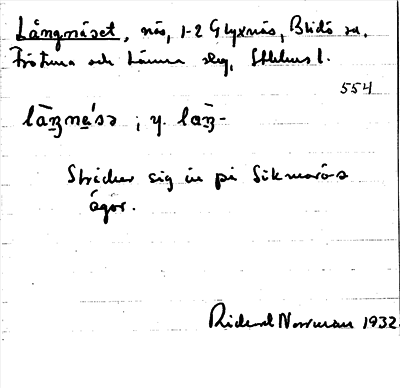 Långnäset, näs, 1-2 Glyxnäs, Blidö sn.
Frötuna och Länna skg, Sthlms l.
554
Sträcker sig in på Sikmarö
ägor.
Rickard Norrman 1932.